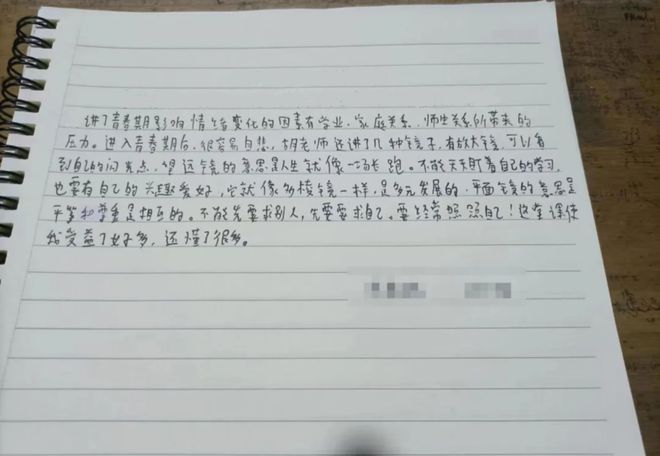 讲了青春期影响情绪变化的因素有学业、家庭关系、师生关系所带来的
压力。进入青春期后,很容易自悲,胡老师还讲了几种镜子,有放大镜,可以看
到自己的闪光点,望远镜的意思是人生就像一场长跑。不能天天盯着自己的学习,
也要有自己的兴趣爱好,它就像多棱镜一样,是多元发展的,平面镜的意思是
平等和尊重是相互的。不能先要求别人,先要要求自己。要经常照照自己!这堂课使
我受益了好多,还懂了很多。